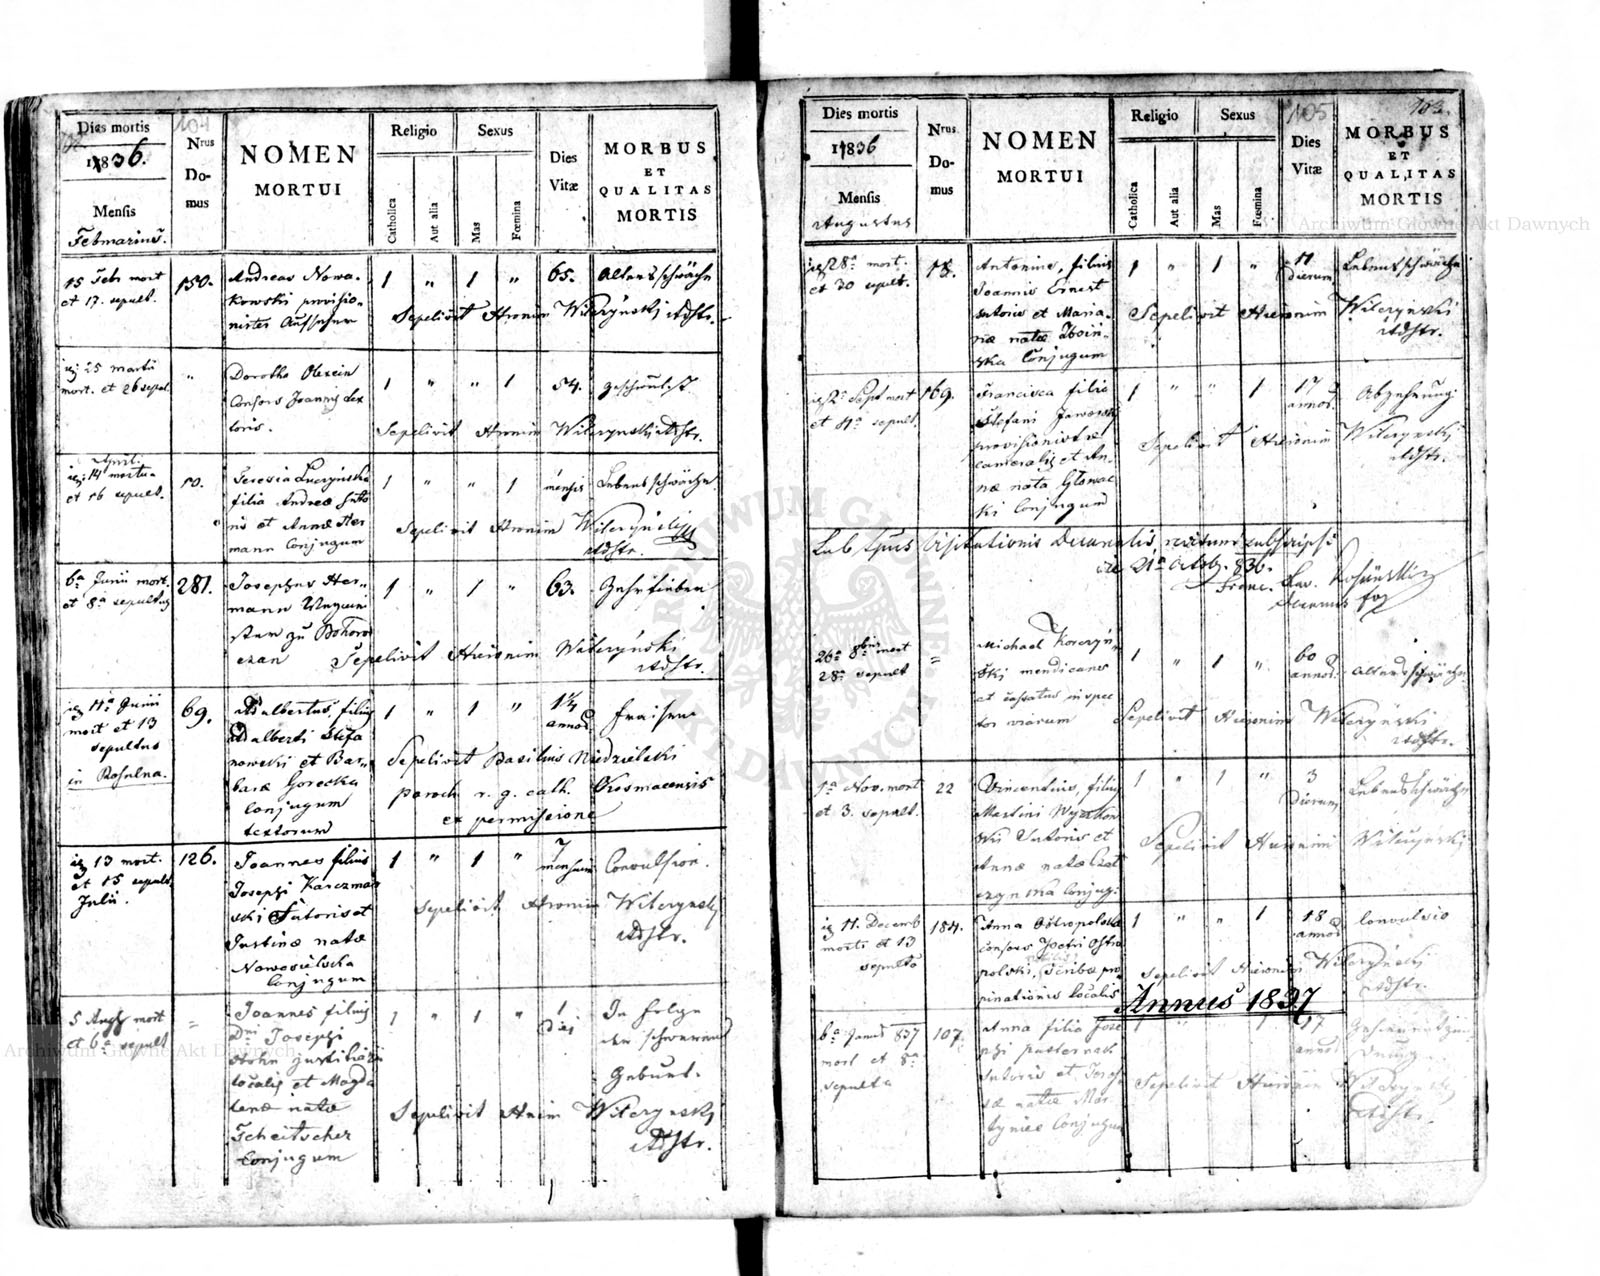 Dies mortis
1836.
Mensis
Februarius.
104
Nrus
Do-
mus
NOMEN
MORTUI
Religio
Catholica
Aut alia
Sexus
Mas
Fœmina
Dies
Vitæ
MORBUS
ET
QUALITAS
MORTIS
15 Feb mort
et 17. sepult.
150.
Andreas Nowa-
kowski provisio-
nistes Aufseher
1 " 1 " 65. Altersschwäche
Sepelivit Hronim Witerzynski Adstr.
25 martii
mort. et 26 sepul.
"
Dorothea
Consors Joannis
toris.
1 " " 1 54. geschwulst
Sepelivit Hronim Witerzynski Adstr.
April.
14 mortua
et 16 sepult.
10.
Teresia Luczynska
filia Andreæ Suto
ris et Annæ Her
mann Conjugum
1 " " 1 mensis Lebensschwäche
Sepelivit Hronim Witerzynski
Adstr.
6a Junii mort.
et 8a sepultus
281.
Josephus Her-
mann
zu Bohorod
czan
1 " 1 " 63.
Sepelivit Hieronim Witerzynski
Adstr.
11a Junii
mort et 13
sepultus
in Rosulna.
69.
Adalbertus, filius
Adalberti Stefa
nowski et Bar
baræ Gorecka
Conjugum
textorum
1 " 1 " 1½
annod
fraisen
Sepelivit Basilius Niedzielski
paroch r. g. cath. Krosmacensis
ex permissione
13 mort.
et 15 sepult.
Julii.
126.
Joannes filius
Josephi Karczmar
ski Sutoris et
Justinæ natæ
Nowosielska
Conjugum
1 " 1 " 7
mensium
Convulsion.
Sepelivit Hronim Witerzynski
Adstr.
5 Augs mort
et 6a sepult
=
Joannes filius
Dni Josephi
Hohn justitiarii
localis et Magda
lenæ natæ
Scheitscher
Conjugum
1 " 1 " 1
Diej
In folge
der schweren
Geburt.
Sepelivit Hnim Witerzynski
Adstr.
Dies mortis
1836
Mensis
Augustus
Nrus
Do-
mus
NOMEN
MORTUI
Religio
Catholica
Aut alia
Sexus
Mas
Fœmina
105
Dies
Vitæ
103.
MORBUS
ET
QUALITAS
MORTIS
28a mort.
et 30 sepult.
18.
Antonius, filius
Joannis Ernest
sutoris et Maria-
næ natæ Zboin-
ska Conjugum
1 " 1 " 11
dierum
Lebensschwäche
Sepelivit Hieronim Witerzynski
Adstr.
2a Sept mort
et 4a sepult.
169.
Francisca filia
Stefani Jaworski
provisionistæ
cameralis et An-
næ nata Glowac
ki Conjugum
1 " " 1 17
annod.
Abzehrung
Sepelivit Hieronim Witerzynski
Adstr.
Sub tpus Visitationis Decanalis, visum subscripsi
die 21a Octob. 836.
Franc. Xav.
Decanus For
26a 8bris mort
28a sepult
=
Michael Korczyn
ski mendicans
et cassatus inspec
tor viarum
1 " 1 " 60
annod.
Altersschwäche
Sepelivit Hieronim Witerzynski
Adstr.
1a Nov. mort
et 3. sepult.
22
Vincentius, filius
Martini
Sutoris et
Annæ natæ
Conjug:
1 " 1 " 3
Dierum
Lebensschwäche
Sepelivit Hieronim Witerzynski
11. Decemb
mort. et 13
sepulta
184.
Anna Ostropolska
consors Petri Ostro
polski, Scribæ pro
pinationis localis
1 " " 1 18
annod
Convulsio
Sepelivit Hieronim Witerzynski
Adstr.
Annus 1837
6a Januar 837
mort et 8a
sepulta
107.
Anna filia Jose
phi pasternak
Sutoris et Jose
fæ natæ Mar
tyniec Conjugum
1 " " 1 17
annod
Sepelivit Hieronim Witerzynski
Adstr.
Archiwum Główne Akt Dawnych
Archiwum Główne Akt Dawnych
ARCHIWUM GŁÓWNE AKT DAWNYCH